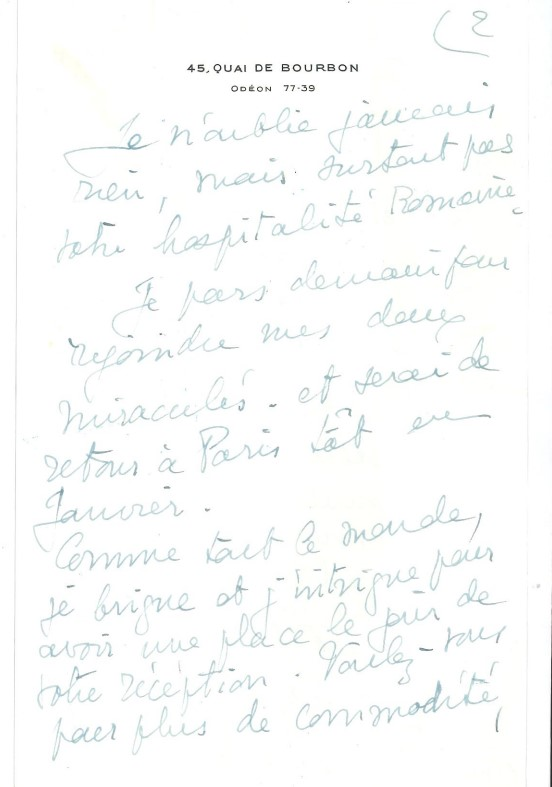 (2
45, QUAI DE BOURBON
ODÉON 77-39
Je n'oublie jamais
rien, mais surtout pas
votre hospitalité Romaine.
Je pars demain pour
rejoindre mes deux
miraculés - et serai de
retour à Paris tôt en
Janvier.
Comme tout le monde,
je brigue et j'intrigue pour
avoir une place le jour de
votre réception. Voulez-vous
pour plus de commodité,